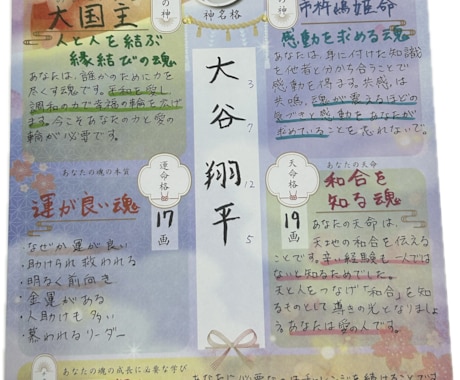 の神
大国主
人と人を結ぶ
縁結びの魂
あなたは、誰かのために力を
尽くす魂です。平和を愛し
調和の力で幸福の輪を広げ
ます。今こそあなたの力と愛の
輪が必要です。
神名格
大谷翔平
3
7
12
5
の神
市杵嶋姫命
感動を求める魂
あなたは、身に付けた知識
を他者と分かち合うことで
感動を得ます。共感は、
共鳴、魂が震えるほどの
気づきと感動をあなたが
求めていることを忘れないで。
あなたの魂の本質
運が良い魂
なぜか運が良い
・助けられ救われる
・明るく前向き
・金運がある
・人助けも多い
・慕われるリーダー
運命格
17画
天命格
19画
あなたの天命
和合を
知る魂
あなたの天命は、
天地の和合を伝える
ことです。辛い経験も一人では
ないと知るためでした。
天と人をつなげ「和合」を知
るものとして導きの光となりましょ
うあなたは愛の人です。
あなたの魂の成長に必要な学び